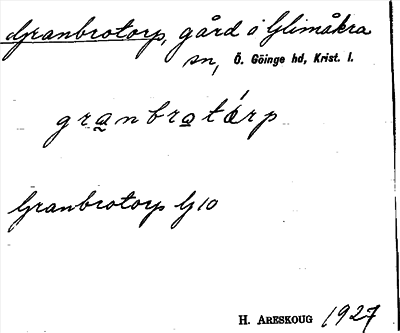 Granbrotorp, gård i Glimåkra
sn, Ö. Göinge hd, Krist. l.
granbrotórp
Granbrotorp G 10
H. ARESKOUG 1927